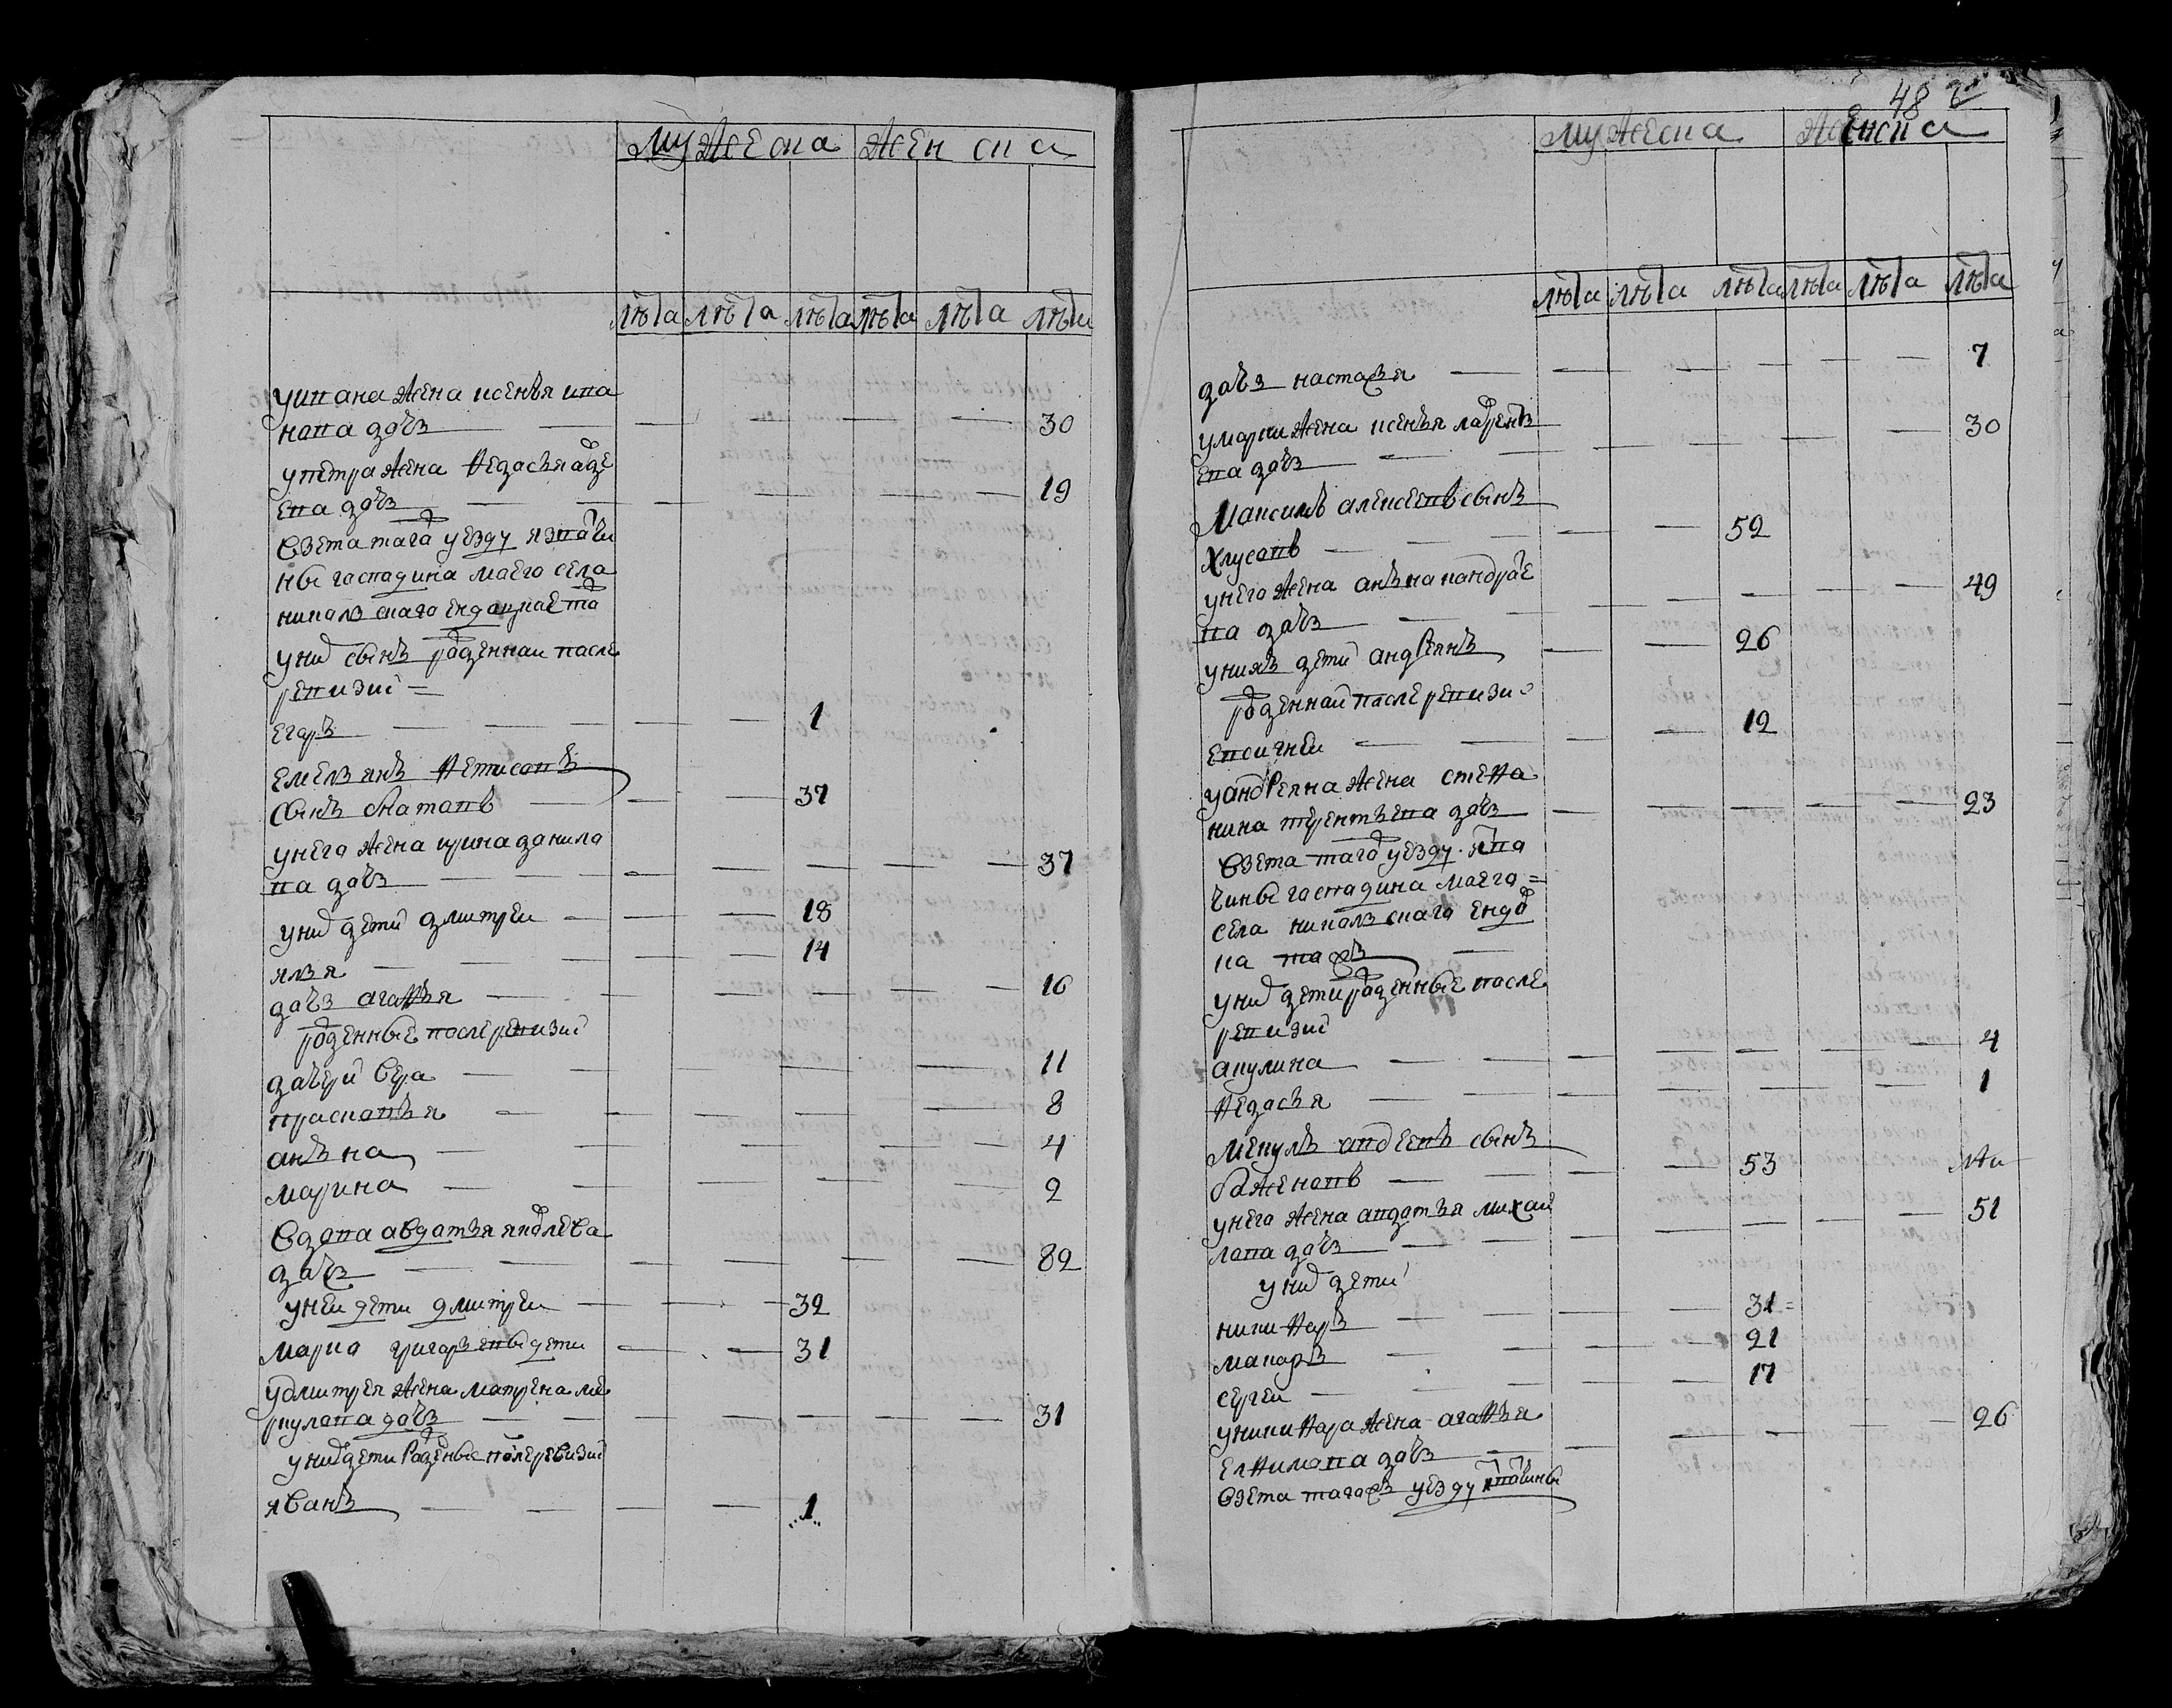 мужеска женска
лѣта лѣта лѣта лѣта лѣта лѣта
уипана жена ксенья ипа
нова дочь 30
упетра жена Федосья авде
ева дочь 19
взета таго уезду язвотчи
ны гаспадина маего села
никольскаго ендавкаетто
уних сынъ роженнаи после
ревизиї
егаръ 1
емельянъ Фетисовъ
сынъ 37
унего жена ирина данила
ва дочь 37
уних детиї дмитреи 18
илья 14
дочь агафья 16
роженные после ревизиї
дочериї вера 11
прасковья 8
анъна 4
марина 2
вдова авдотья яковлева
дочь 82
унеи дети дмитреи 32
марка григорьевы дети 31
удмитрея жена матрена ме
ркулова дочь 31
унихдети роженые после ревизиї
иванъ 1
48
мужеска женска
лѣта лѣта лѣта лѣта лѣта лѣта
дочь настасья 7
умарки жена ксенья лаврентъ
ева дочь 30
Максимъ алексеевъ сынъ
хлусовъ 52
унего жена анъна кондрате
ва дочь 49
унихъ детиї андреянъ 26
роженнаи после ревизиї
евсигнеи 12
уандреяна жена стефа
нида терентьева дочь 23
взета таго уезду ис вот
чины гаспадина маего
села никольскаго ендов
ка тожъ
уних дети роженные после
ревизиї
акулина 4
Федосья 1
Мекулъ авдеевъ сынъ
баженовъ 53
унего жена авдотья михаи
лова дочь 51
уних детиї
никифоръ 31
макаръ 21
сергеи 17
уникифора жена агафья
ефимова дочь 26
взета тагожъ уезду